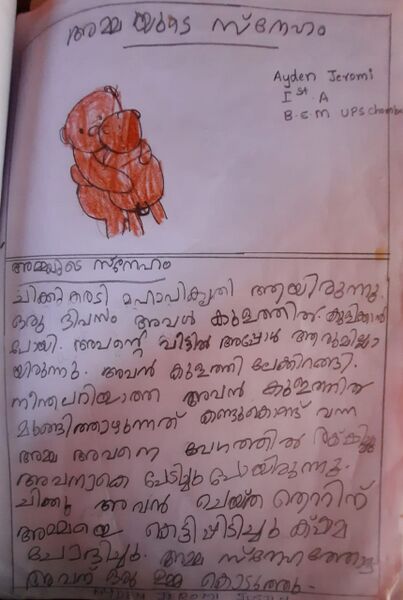 അമ്മയുടെ സ്നേഹം
Ayden Jeromi
Ist A
B.E.M UPS Chomba
അമ്മയുടെ സ്നേഹം
ചിക്കു കരടി മഹാവികൃതി ആയിരുന്നു.
ഒരു ദിവസം അവൻ കുളത്തിൽ കുളിക്കാൻ
പോയി. അവന്റെ വീട്ടിൽ അപ്പോൾ ആരുമില്ലാ
യിരുന്നു. അവൻ കുളത്തി ലേക്കിറങ്ങി.
നീന്തലറിയാത്ത അവൻ കുളത്തിൽ
മുങ്ങിത്താഴുന്നത് കണ്ടുകൊണ്ട് വന്ന
അമ്മ അവനെ വേഗത്തിൽ രക്ഷിച്ചു
അവനാകെ പേടിച്ചു പോയിരുന്നു.
ചിക്കു അവൻ ചെയ്ത തെററിന്
അമ്മയെ കെട്ടിപ്പിടിച്ചു ക്ഷമ
ചോദിച്ചു. അമ്മ സ്നേഹത്തോടെ
അവന് ഒരു ഉമ്മ കൊടുത്തു.